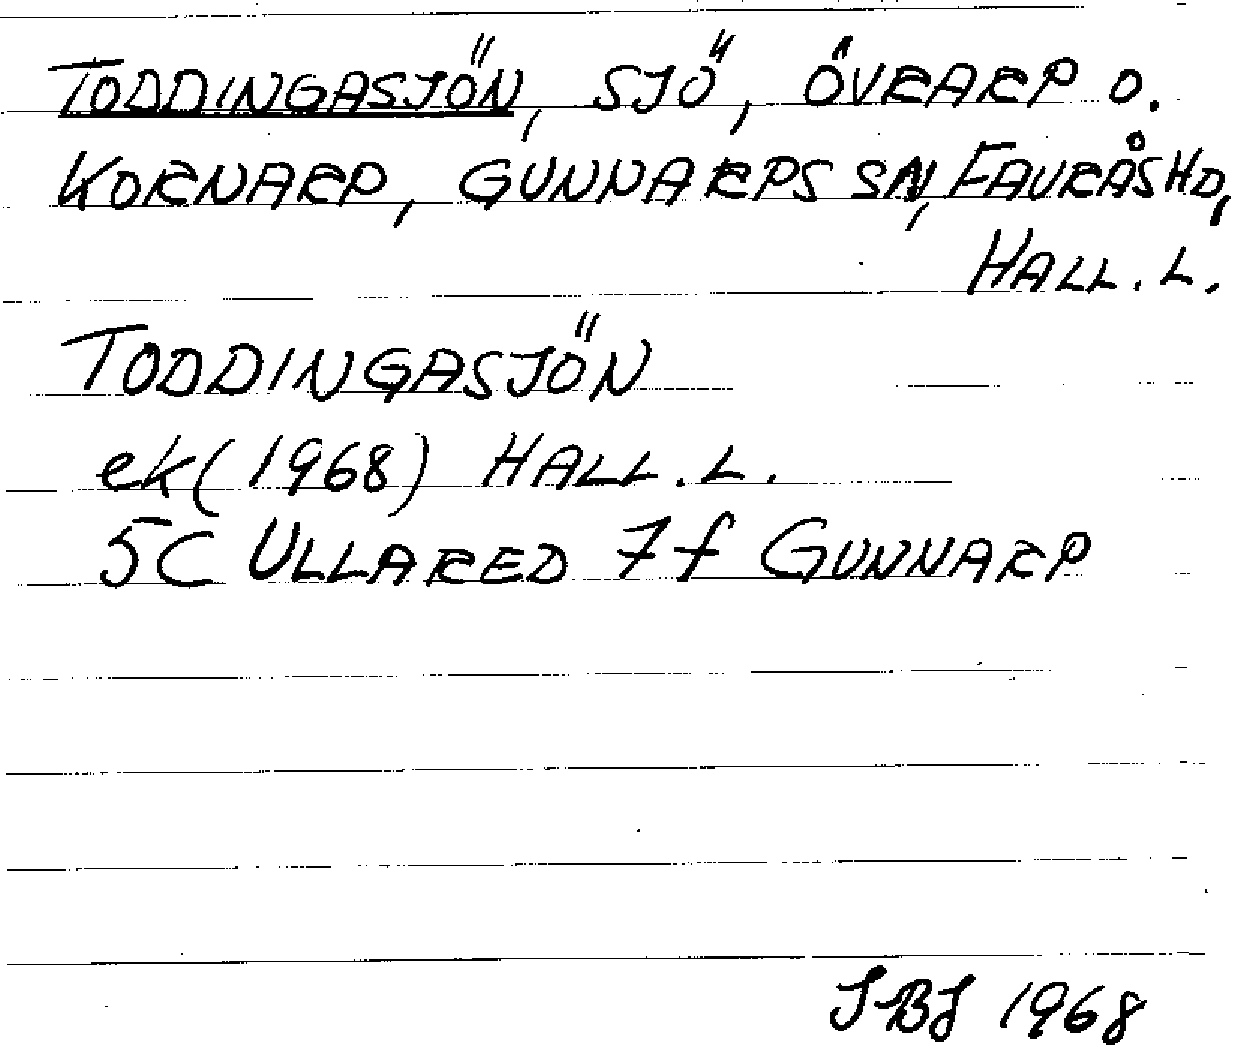 TODDINGASJÖN, SJÖ, ÖVRARP O.
KORNARP, GUNNARPS SN, FAURÅS HD,
HALL. L.
TODDINGASJÖN
ek (1968) HALL. L.
5C ULLARED 7f GUNNARP
JBJ 1968